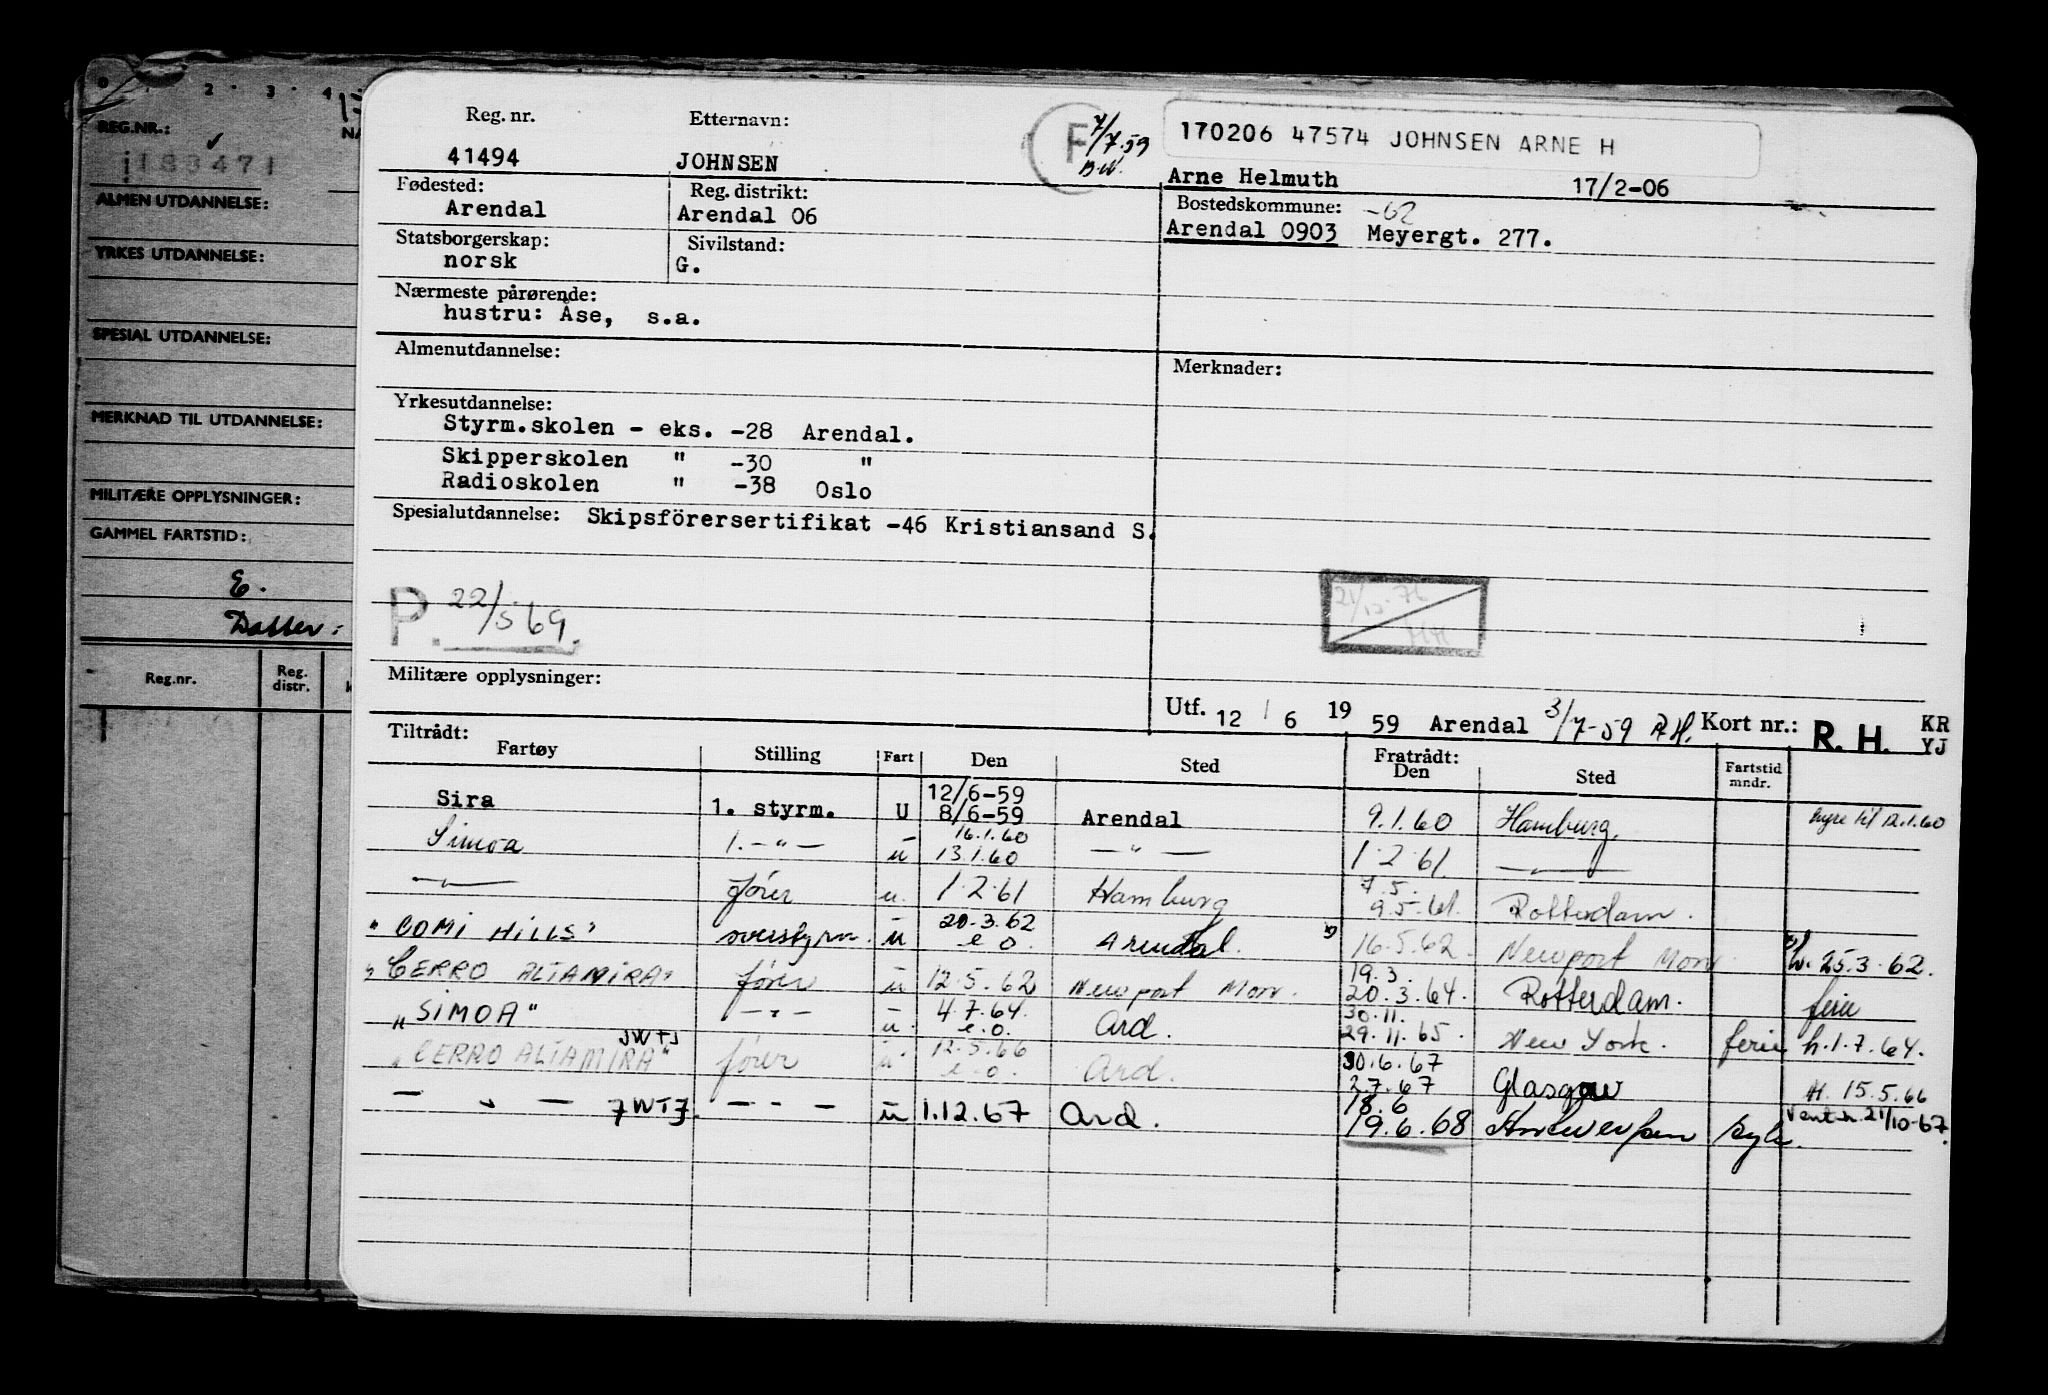 0 2 · 3 · 4
REG.NR.:
183471
ALMEN UTDANNELSE:
YRKES UTDANNELSE:
SPESIAL UTDANNELSE:
MERKNAD TIL UTDANNELSE:
MILITÆRE OPPLYSNINGER:
GAMMEL FARTSTID:
E.
Datter:
Reg.nr. Reg. distr.
Reg. nr. Etternavn:
41494 JOHNSEN
F 7/7-59
170206 47574 JOHNSEN ARNE H
Arne Helmuth 17/2-06
Fødested: Reg. distrikt: Bostedskommune: -62
Arendal Arendal 06 Arendal 0903 Meyergt. 277.
Statsborgerskap: Sivilstand:
norsk G.
Nærmeste pårørende:
hustru: Åse, s.a.
Almenutdannelse: Merknader:
Yrkesutdannelse:
Styrm.skolen - eks. -28 Arendal.
Skipperskolen " -30 "
Radioskolen " -38 Oslo
Spesialutdannelse: Skipsförersertifikat -46 Kristiansand S.
P. 22/5 69.
21/12.76
HH
Militære opplysninger:
Utf. 12 / 6 19 59 Arendal 3/7-59 A.H. Kort nr.: R. H. KR YJ
Tiltrådt: Fratrådt:
Fartøy Stilling Fart Den Sted Den Sted Fartstid mndr.
12/6-59
Sira 1. styrm. U 8/6-59 Arendal 9.1.60 Hamburg. hyre til 12.1.60
16.1.60
Simoa 1. - " - u 13.1.60 - " - 1.2.61. - " -
7.5.
- " - fører u. 1.2.61 Hamburg 9.5.61. Rotterdam.
20.3.62
"COMI HILLS" overstyrm. u e o. Arendal. 16.5.62 Newport Mon h. 25.3.62.
19.3.
"CERRO ALTAMIRA" fører u 12.5.62 Newport Mon. 20.3.64. Rotterdam. ferie
4.7.64. 30.11.
"SIMOA" - " - u. e.o. Ard. 29.11.65. New York. ferie h.1.7.64.
JWTJ 12.5.66 30.6.67
"CERRO ALTAMIRA" fører u. e.o. Ard. 2.7.67 Glasgow H. 15.5.66
18.6 Vent.h.21/10-67.
- " - JWTJ. - " - u 1.12.67 Ard. 19.6.68 Antwerpen syk.